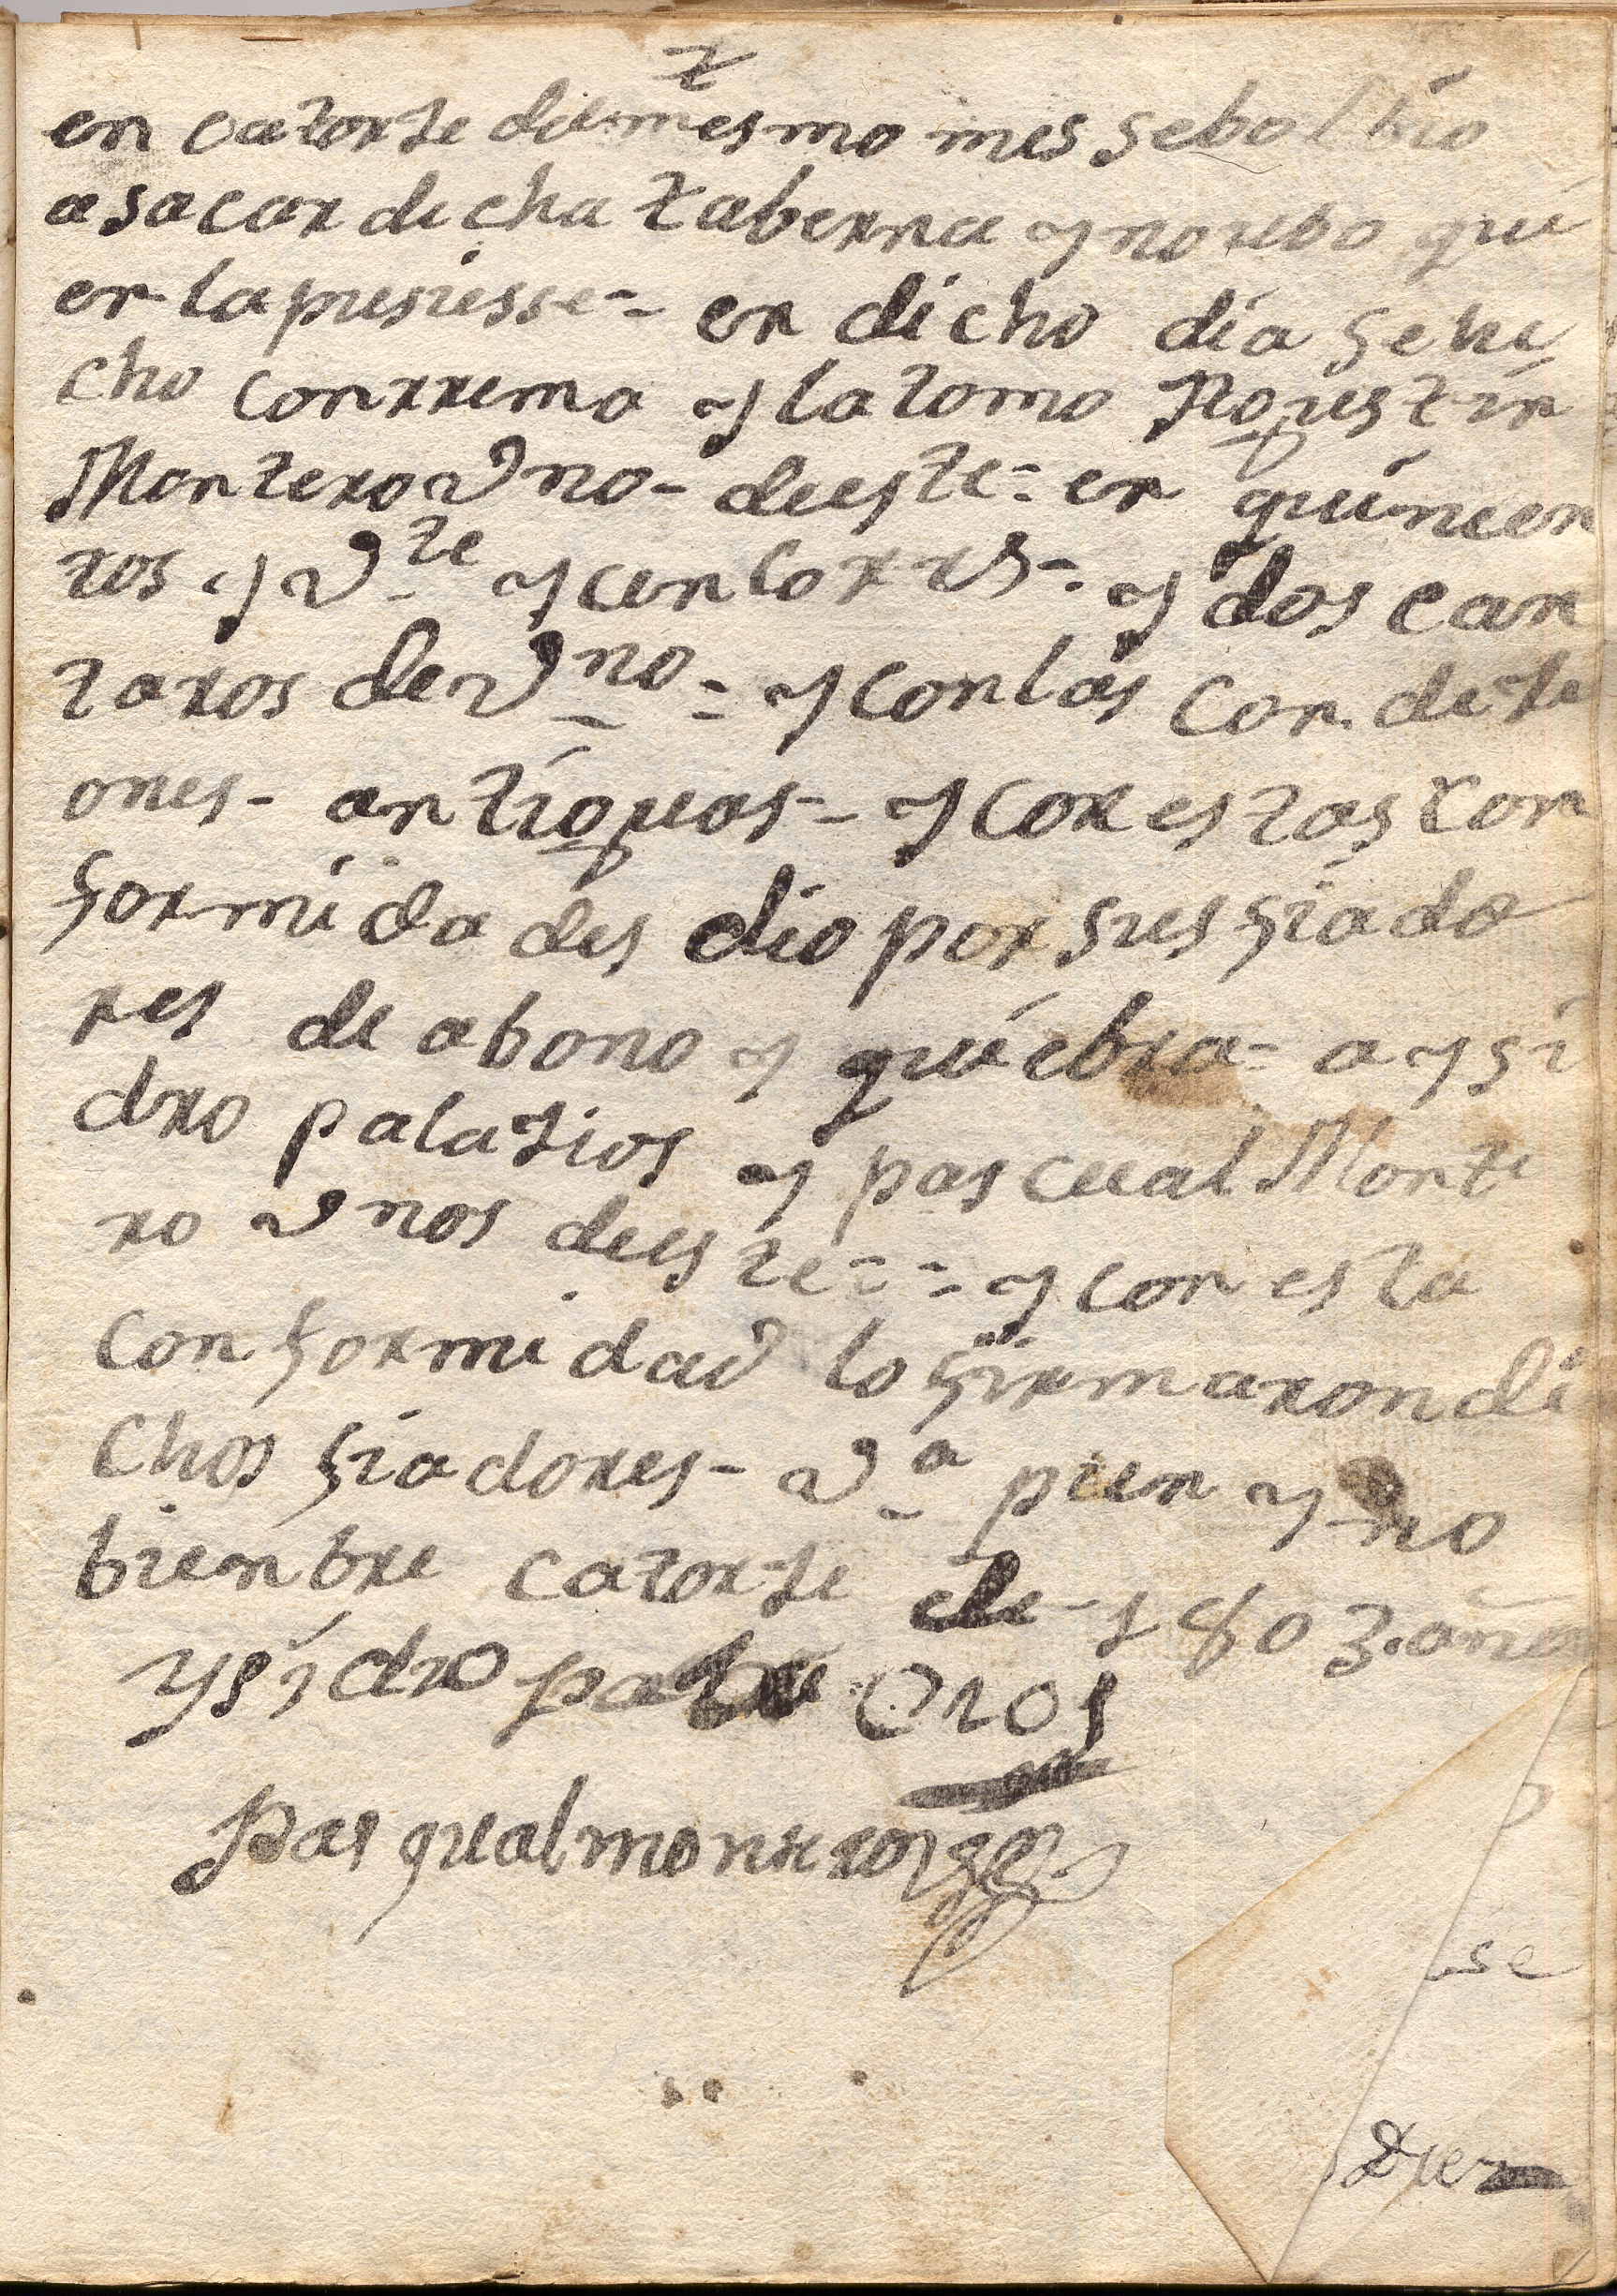 en catorse del mesmo mes se bolbio
a sacar dicha taberna y no ubo qui
en la pusiesse = en dicho dia se hi
cho con rremo y la tomo Agustin
Montero vno- de este = en quinien
tos y v.te y cinco rrs = y dos can
taros de v.no = y con las condisi
ones - antiguas - y con estas con
formidades dio por sus fiado
res de abono y quiebra = a ysi
dro palasios y pascual Monte
ro vnos de este = = y con esta
conformidad lo firmaron di
chos fiadores - v.a pun y no
bienbre catorse de 1803. años
ysidro pala cios
Pasqual montero
se
Diez